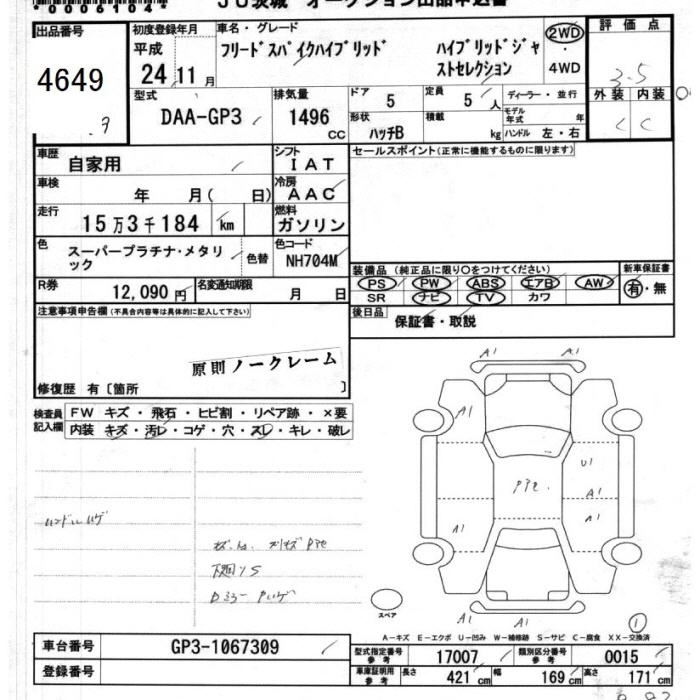 *0006104*
JU茨城 オークション出品申込書
出品番号
4649
初度登録年月
平成
24 11月
車名・グレード
フリードスパイクハイブリッド ハイブリッドジャ
ストセレクション
2WD
・
4WD
評価点
3.5
外装 内装
C C
型式
DAA-GP3
排気量
1496
CC
ドア
5
定員
5 人
ディーラー・並行
モデル
年式 年
形状
ハッチB
積載
kg
ハンドル 左・右
車歴
自家用
シフト
IAT
セールスポイント(正常に機能するものに限ります)
車検
年 月( 日)
冷房
AAC
走行
15万3千184 km
燃料
ガソリン
色
スーパープラチナ・メタリ
ック
色替
色コード
NH704M
R券
12,090円
名変通知期限
月 日
装備品(純正品に限り○をつけてください)
PS PW ABS エアB AW
SR ナビ TV カワ
新車保証書
有・無
後日品
保証書・取説
注意事項申告欄(不具合内容等は具体的に記入して下さい)
原則ノークレーム
修復歴 有〔箇所 〕
検査員
記入欄
FW キズ・飛石・ヒビ割・リペア跡・×要
内装 キズ・汚レ・コゲ・穴・スレ・キレ・破レ
ハンドルハゲ
下廻りS
A1 A1
A1
U1
A1
A1 A1
A1 A1
スペア
1
A-キズ E-エクボ U-凹み W-補修跡 S-サビ C-腐食 XX-交換済
車台番号
GP3-1067309
登録番号
型式指定番号
参考
17007
類別区分番号
参考
0015
車庫証明用
参考
長さ 421 cm
幅 169 cm
高さ 171 cm